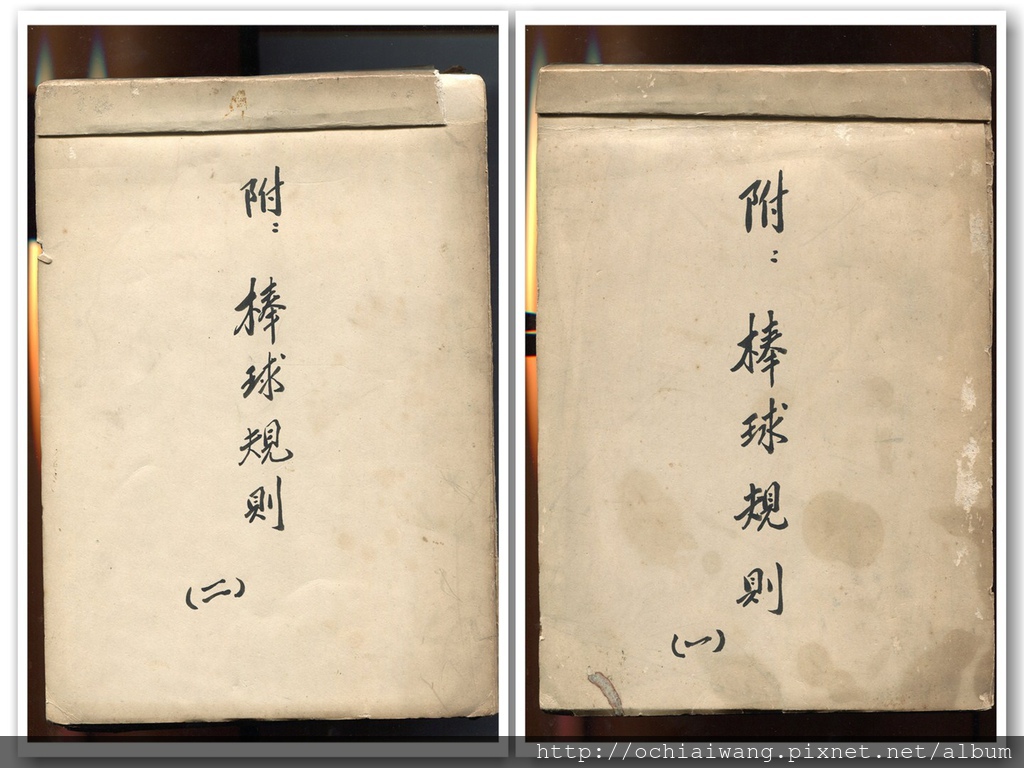 附：
棒球規則
(二)
附：
棒球規則
(一)
http://ochiaiwang.pixnet.net/album